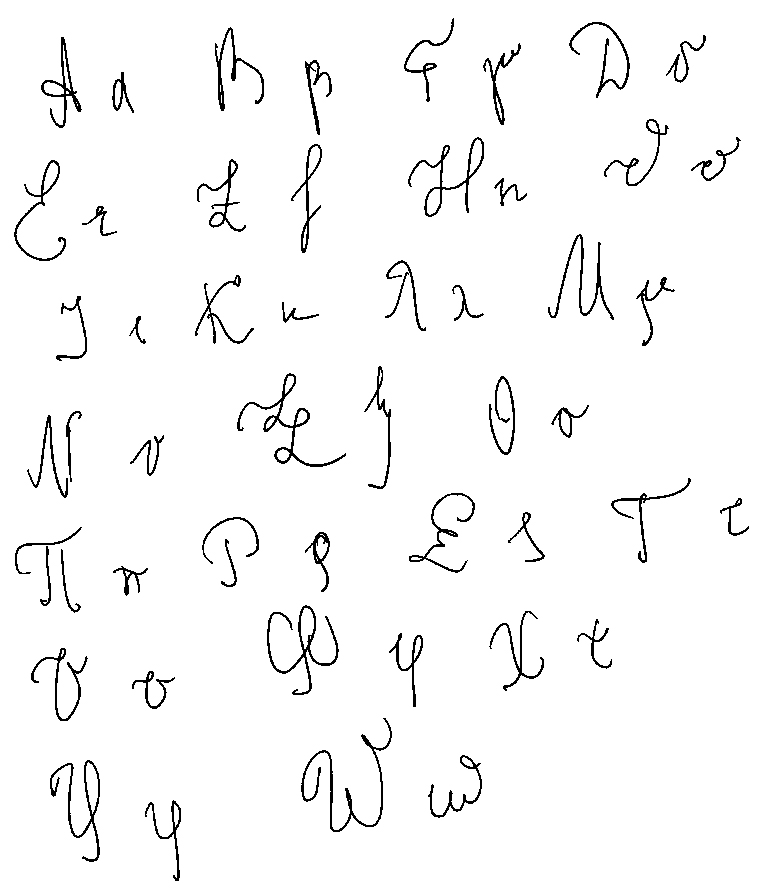 Α α Β β Γ γ Δ δ
Ε ε Ζ ζ Η η Θ θ
Ι ι Κ κ Λ λ Μ μ
Ν ν Ξ ξ Ο ο
Π π Ρ ρ Σ ς Τ τ
Υ υ Φ φ Χ χ
Ψ ψ Ω ω